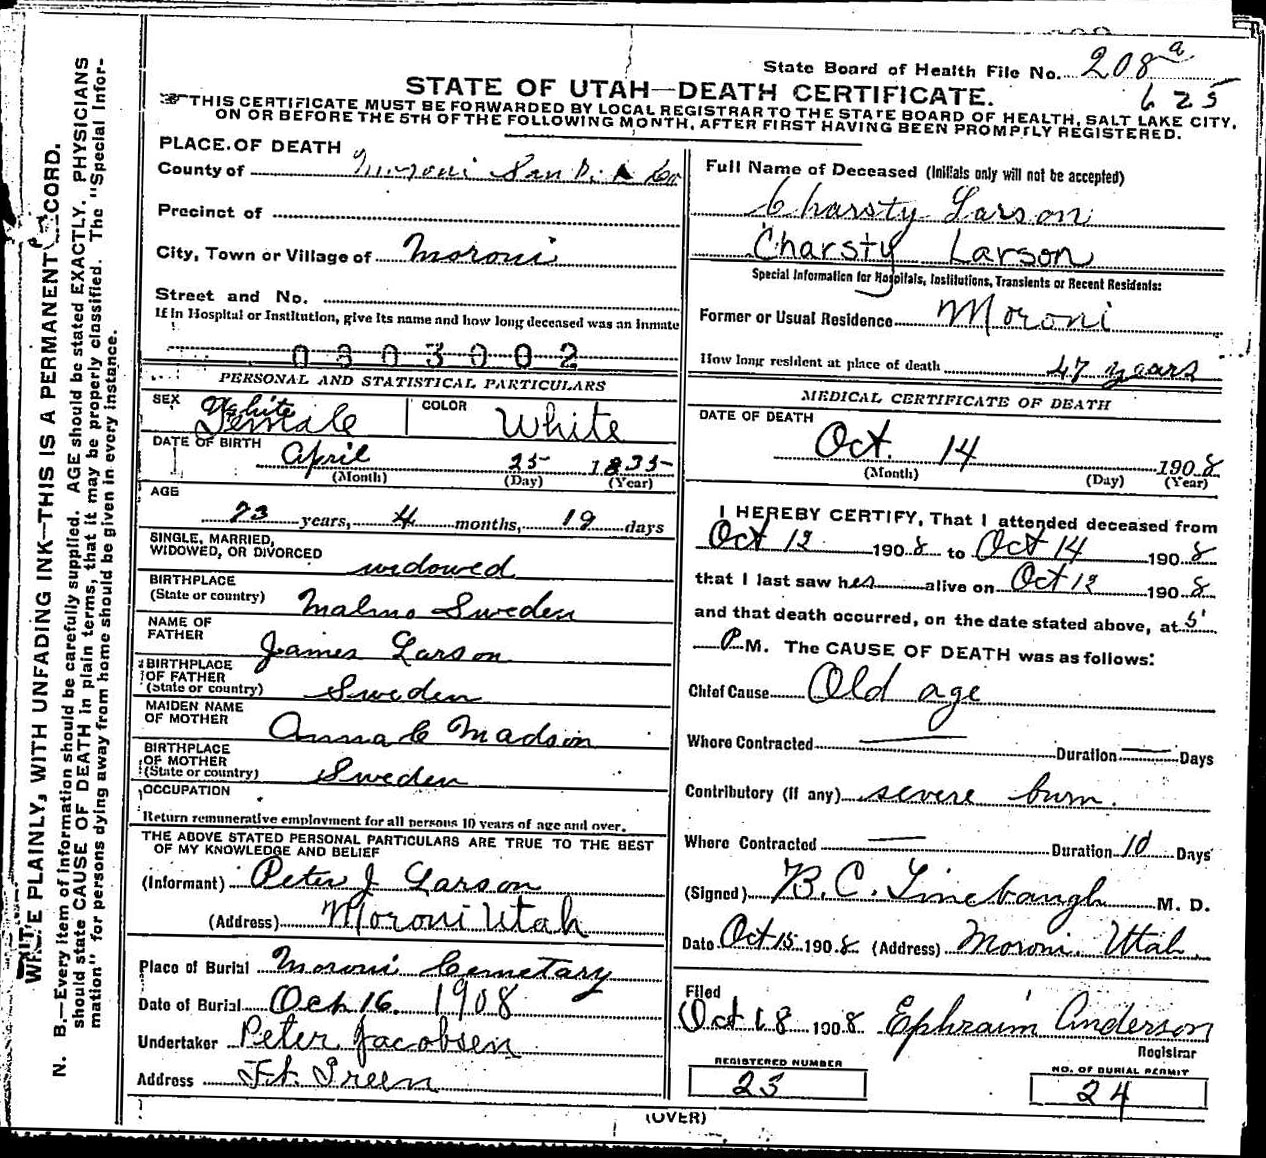 State Board of Health File No. 208 a
625
STATE OF UTAH—DEATH CERTIFICATE.
THIS CERTIFICATE MUST BE FORWARDED BY LOCAL REGISTRAR TO THE STATE BOARD OF HEALTH, SALT LAKE CITY,
ON OR BEFORE THE 5TH OF THE FOLLOWING MONTH, AFTER FIRST HAVING BEEN PROMPTLY REGISTERED.
PLACE OF DEATH
County of Moroni San Co
Precinct of
City, Town or Village of Moroni
Street and No.
If in Hospital or Institution, give its name and how long deceased was an inmate
0303002
PERSONAL AND STATISTICAL PARTICULARS
SEX White Female COLOR White
DATE OF BIRTH April 25 1835
(Month) (Day) (Year)
AGE
73 years, 4 months, 19 days
SINGLE, MARRIED,
WIDOWED, OR DIVORCED widowed
BIRTHPLACE
(State or country) Malmo Sweden
NAME OF
FATHER James Larson
BIRTHPLACE
OF FATHER
(State or country) Sweden
MAIDEN NAME
OF MOTHER Anna C Madson
BIRTHPLACE
OF MOTHER
(State or country) Sweden
OCCUPATION
Return remunerative employment for all persons 10 years of age and over.
THE ABOVE STATED PERSONAL PARTICULARS ARE TRUE TO THE BEST
OF MY KNOWLEDGE AND BELIEF
(Informant) Peter J Larson
(Address) Moroni Utah
Place of Burial Moroni Cemetary
Date of Burial Oct 16. 1908
Undertaker Peter Jacobsen
Address Ft. Green
Full Name of Deceased (Initials only will not be accepted)
Charsty Larson
Charsty Larson
Special Information for Hospitals, Institutions, Transients or Recent Residents:
Former or Usual Residence Moroni
How long resident at place of death 47 years
MEDICAL CERTIFICATE OF DEATH
DATE OF DEATH
Oct. 14 1908
(Month) (Day) (Year)
I HEREBY CERTIFY, That I attended deceased from
Oct 12 1908 to Oct 14 1908
that I last saw her alive on Oct 12 1908
and that death occurred, on the date stated above, at 5
P. M. The CAUSE OF DEATH was as follows:
Chief Cause Old age
Where Contracted — Duration — Days
Contributory (if any) severe burn.
Where Contracted — Duration 10 Days
(Signed) B. C. Linebaugh M. D.
Date Oct 15 1908 (Address) Moroni Utah.
Filed
Oct 18 1908 Ephraim Anderson
Registrar
REGISTERED NUMBER
23
NO. OF BURIAL PERMIT
24
(OVER)
WRITE PLAINLY, WITH UNFADING INK—THIS IS A PERMANENT RECORD.
N. B.—Every item of information should be carefully supplied. AGE should be stated EXACTLY. PHYSICIANS
should state CAUSE OF DEATH in plain terms, that it may be properly classified. The "Special Infor-
mation" for persons dying away from home should be given in every instance.